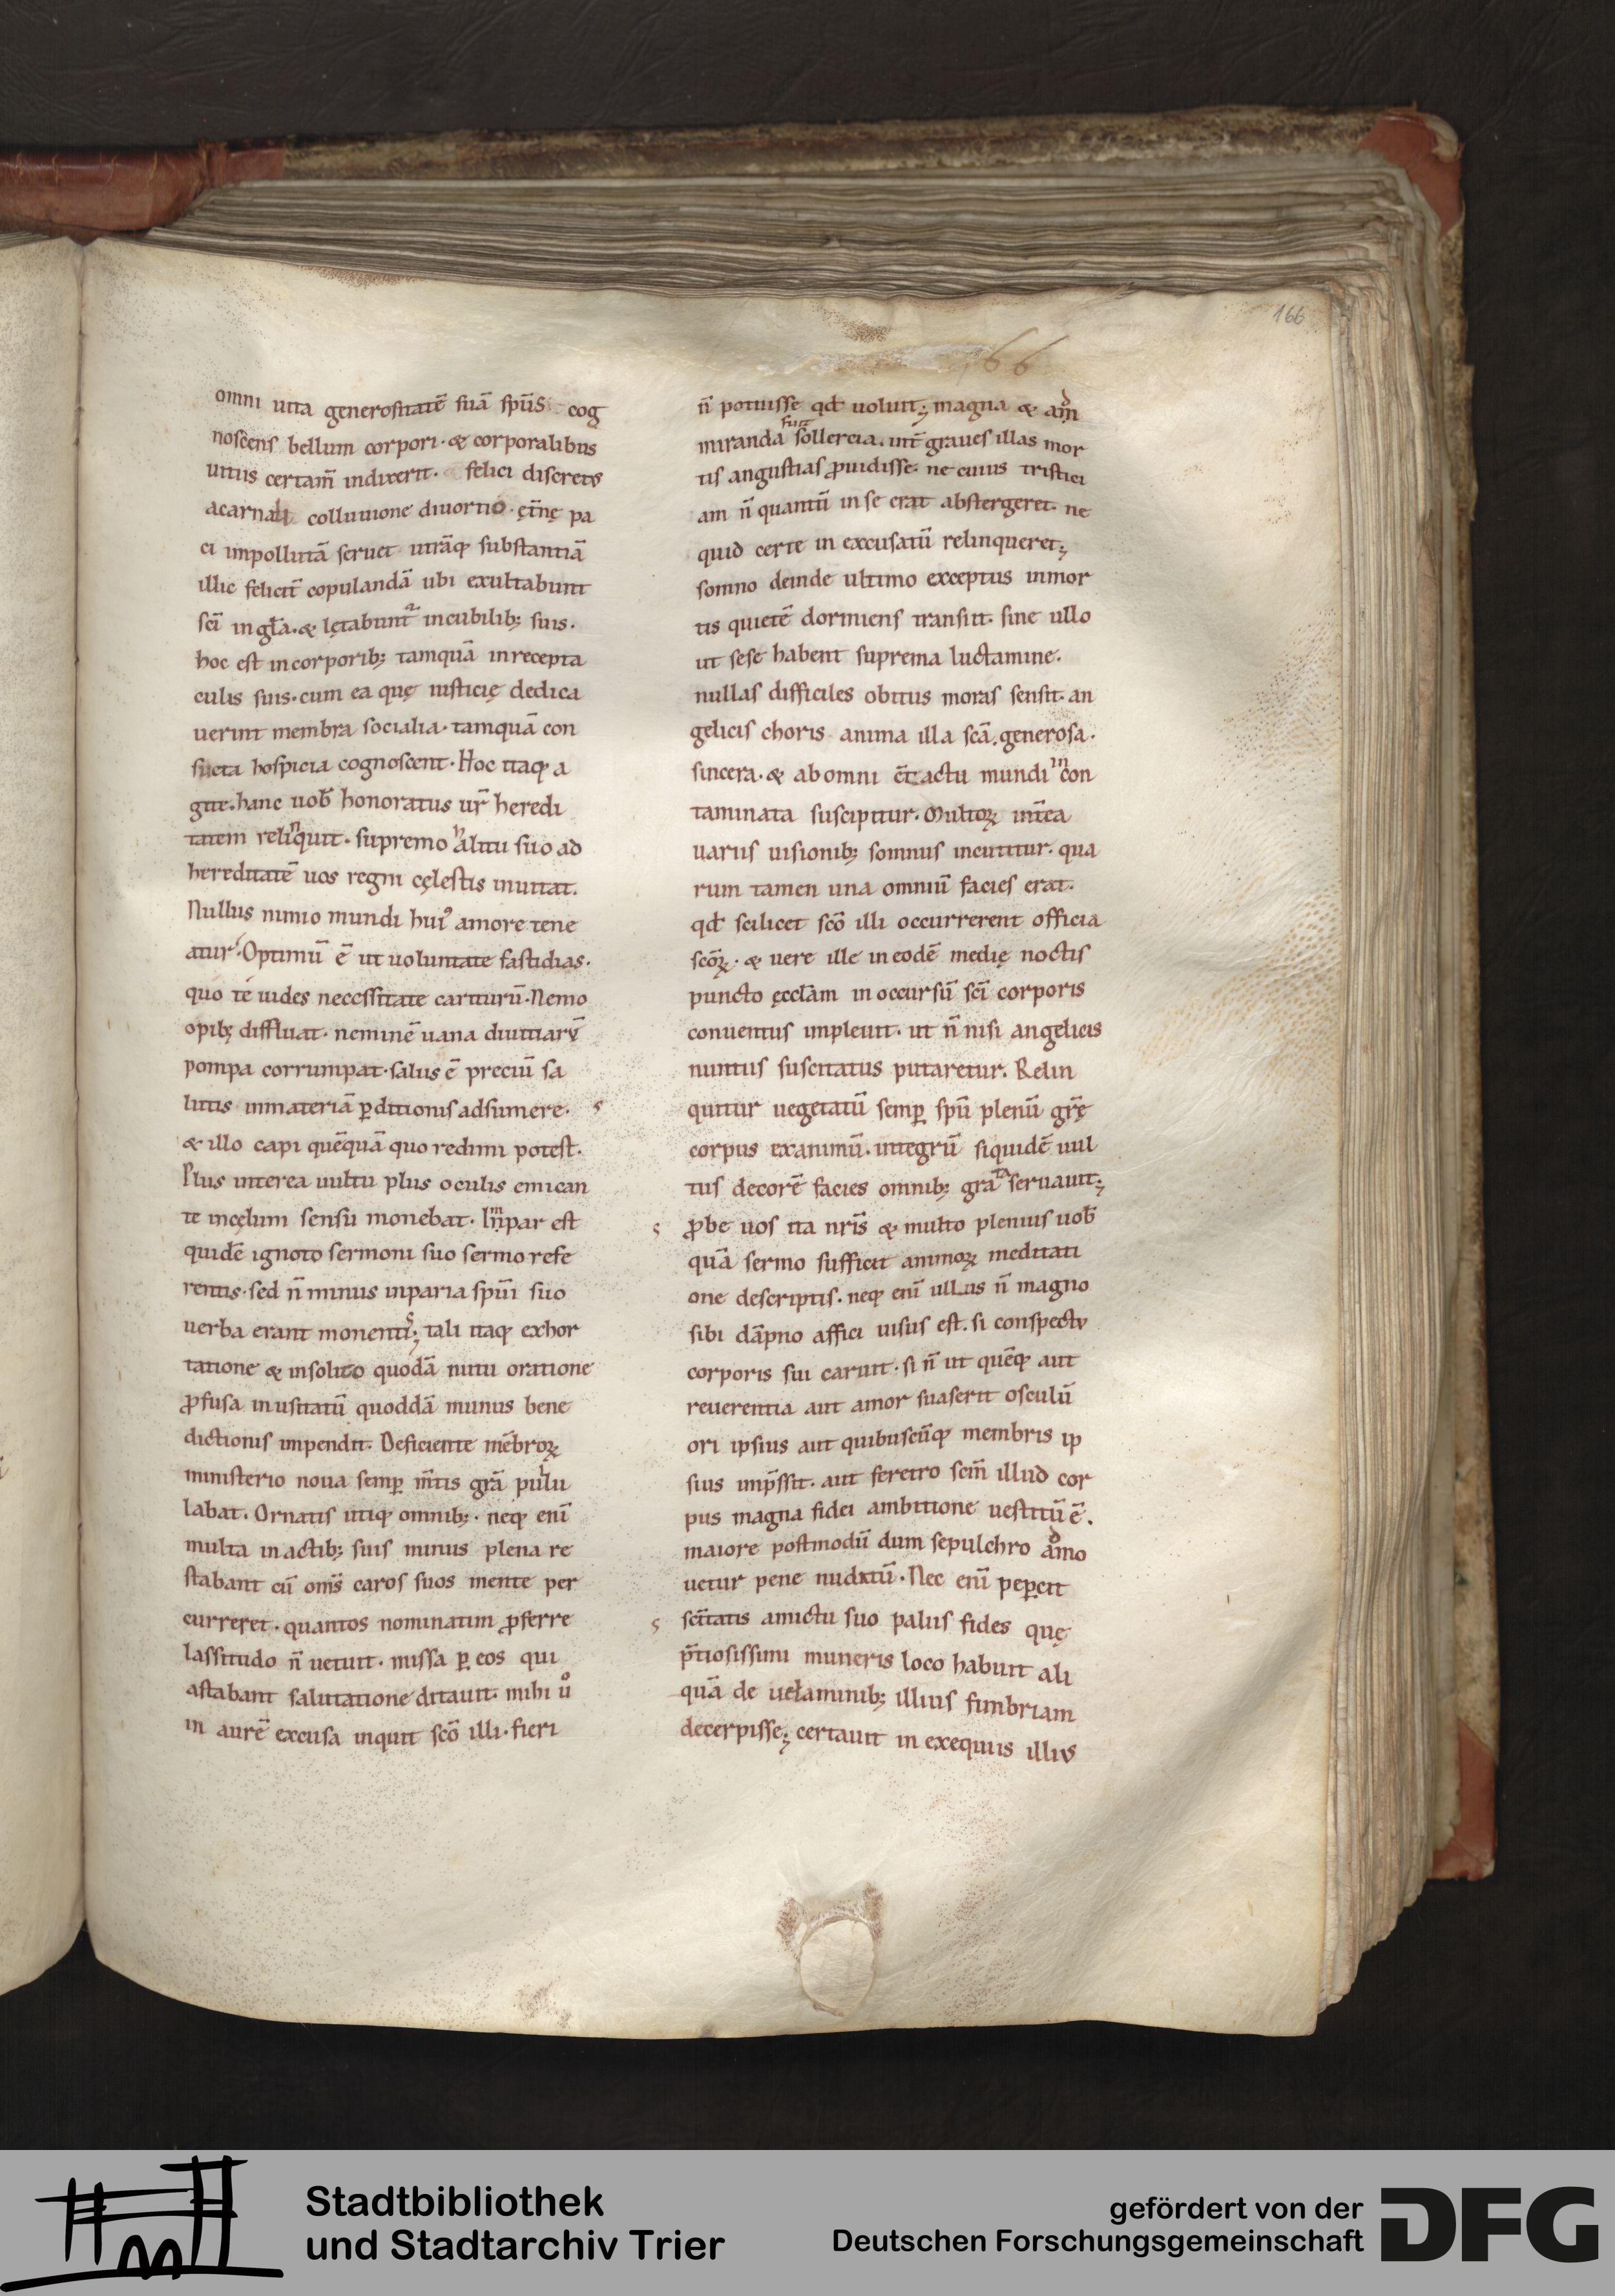 166
66
omni uita generositatē suā sp̄us cog
noscens bellum corpori · & corporalibus
uitiis certam̄ indixerit · felici discreto
acarnali colluuione diuortio · ęt̄nę pa
ci impollutā seruet utrāq; substantiā
illic felicit̄ copulandā ubi exultabunt
sc̄i in gl̄a · & lętabunt̄ incubilib; suis ·
hoc est incorporib; tamquā inrecepta
culis suis · cum ea quę iusticię dedica
uerint membra socialia · tamquā con
sueta hospicia cognoscent · Hoc itaq; a
gite · hanc uob̄ honoratus ur̄ heredi
tatem reliquit · supremo alitu suo ad
hereditatē uos regni cęlestis inuitat ·
Nullus nimio mundi hui᾽ amore tene
atur · Optimū ē ut uoluntate fastidias ·
quo te uides necessitate cariturū · Nemo
opib; diffluat · neminē uana diuitiarū
pompa corrumpat · salus ē preciū sa
lutis inmateriā p̱ditionis adsumere ·
& illo capi quēquā quo redimi potest ·
Plus interea uultu plus oculis emican
te incęlum sensu monebat · Inpar est
quidē ignoto sermoni suo sermo refe
rentis · sed n̄ minus inparia sp̄ui suo
uerba erant monenti; tali itaq; exhor
tatione & insolito quodā nutu oratione
ꝓfusa inusitatū quoddā munus bene
dictionis impendit · Deficiente mēbroꝝ
ministerio noua semp̱ m̄tis gr̄a pullu
labat · Ornatis utiq; omnib; · neq; enī
multa inactib; suis minus plena re
stabant cū om̄s caros suos mente per
curreret · quantos nominatim ꝓferre
lassitudo n̄ uetuit · missa p̱ eos qui
astabant salutatione ditauit · mihi uº
in aurē excusa inquit scō illi · fieri
n̄ potuisse qd̄ uoluit; magna & adm̄
miranda fuit sollercia · int̄ graues illas mor
tis angustias ꝓuidisse · ne cuius tristici
am n̄ quantū in se erat abstergeret · ne
quid certe in excusatū relinqueret;
somno deinde ultimo exceptus inmor
tis quietē dormiens transiit · sine ullo
ut sese habent suprema luctamine ·
nullas difficiles obitus moras sensit · an
gelicis choris anima illa sc̄a · generosa ·
sincera · & ab omni c̄tactu mundi incon
taminata suscipitur · Multoꝝ int̄ea
uariis uisionib; somnus incutitur · qua
rum tamen una omniū facies erat ·
qd̄ scilicet scō illi occurrerent officia
scōꝝ · & uere ille in eodē medię noctis
puncto ęccl̄am in occursū sc̄i corporis
conuentus impleuit · ut n̄ nisi angelicis
nuntiis suscitatus putaretur · Relin
quitur uegetatū semp̱ sp̄u plenū gr̄ę
corpus exanimū · integrū siquidē uul
tus decorē facies omnib; grata seruauit;
ꝓbe uos ita nr̄is & multo plenius uob̄
quā sermo sufficit animoꝝ meditati
one descriptis · neq; enī ullus n̄ magno
sibi dāpno affici uisus est · si conspectu
corporis sui caruit · si n̄ ut quēq; aut
reuerentia aut amor suaserit osculū
ori ipsius aut quibuscūq; membris ip
sius imp̄ssit · aut feretro scm̄ illud cor
pus magna fidei ambitione uestitū ē ·
maiore postmodū dum sepulchro admo
uetur pene nudatū · Nec enī pep̱cit
sc̄itatis amictu suo palus fides quę
p̄tiosissimi muneris loco habuit ali
quā de uelaminib; illius fimbriam
decerpisse; certauit in exequiis illius
Stadtbibliothek
und Stadtarchiv Trier
gefördert von der
Deutschen Forschungsgemeinschaft
DFG